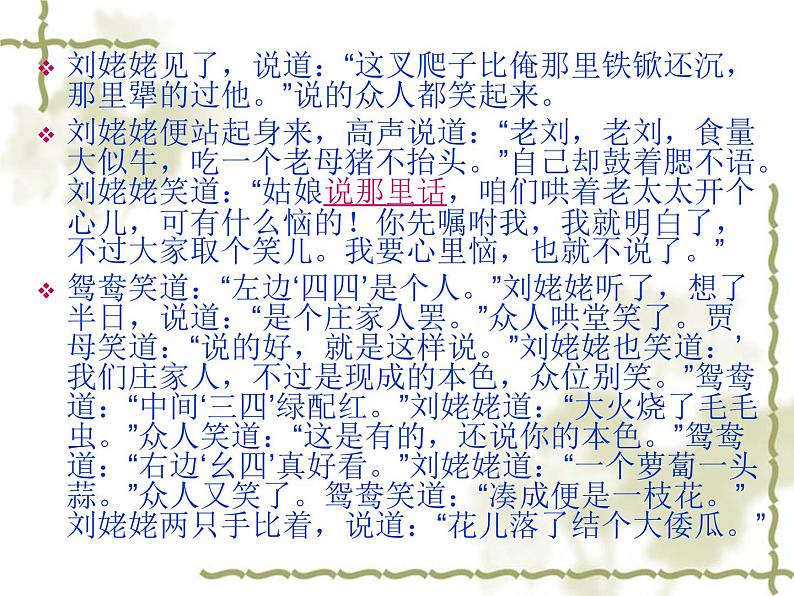 刘姥姥见了，说道：“这叉爬子比俺那里铁锨还沉，
那里犟的过他。”说的众人都笑起来。
刘姥姥便站起身来，高声说道：“老刘，老刘，食量
大似牛，吃一个老母猪不抬头。”自己却鼓着腮不语。
刘姥姥笑道：“姑娘说那里话，咱们哄着老太太开个
心儿，可有什么恼的！你先嘱咐我，我就明白了，
不过大家取个笑儿。我要心里恼，也就不说了。”
鸳鸯笑道：“左边‘四四’是个人。”刘姥姥听了，想了
半日，说道：“是个庄家人罢。”众人哄堂笑了。贾
母笑道：“说的好，就是这样说。”刘姥姥也笑道：’
我们庄家人，不过是现成的本色，众位别笑。”鸳鸯
道：“中间‘三四’绿配红。”刘姥姥道：“大火烧了毛毛
虫。”众人笑道：“这是有的，还说你的本色。”鸳鸯
道：“右边‘幺四’真好看。”刘姥姥道：“一个萝蔔一头
蒜。”众人又笑了。鸳鸯笑道：“凑成便是一枝花。”
刘姥姥两只手比着，说道：“花儿落了结个大倭瓜。”